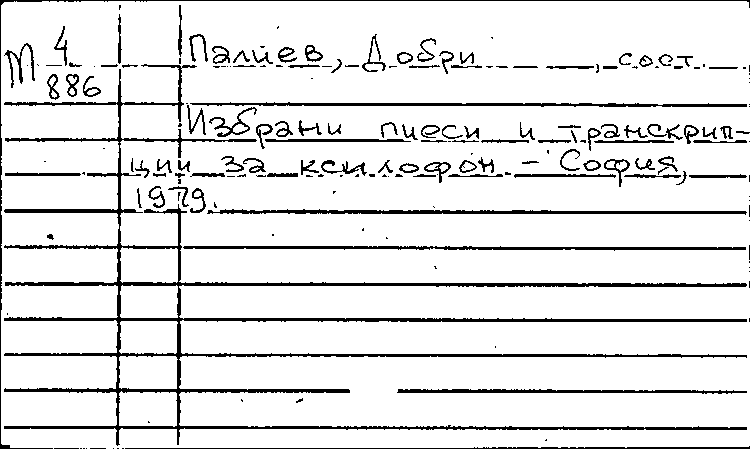 М 4
886
Палиев, Добри , сост.
Избрани пиеси и транскрип-
ции за ксилофон. - София,
1979.